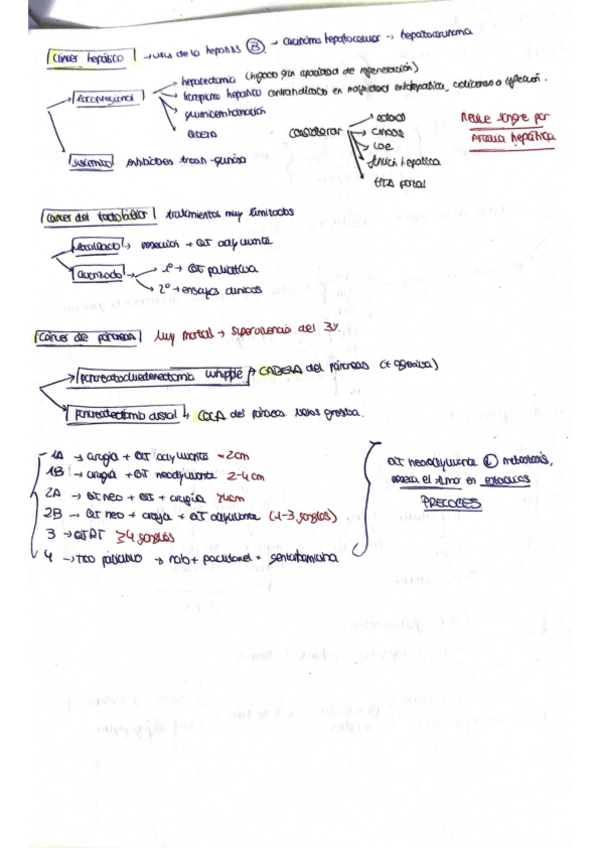 Cáncer hepático → virus de la hepatitis (B) → carcinoma hepatocelular → hepatocarcinoma
Locorregional
hepatectomia (hígado gran capacidad de regeneración)
trasplante hepático contraindicado en malignidad extrahepática, colidoras o afección.
quimioembolización
considerar
edad
CIRROSIS
LOE
función hepática
HTA portal
Recibe sangre por
Arteria hepática
sistémico inhibidores tirosin-quinasa
Cáncer del tracto biliar tratamientos muy limitados
localizado → resección + QT adyuvante
avanzado
1º → QT paliativa
2º → ensayos clínicos
Cáncer de páncreas Muy mortal → supervivencia del 3%.
pancreatoduodenectomia whipple → CABEZA del páncreas (+ agresiva)
pancreatectomía distal → COLA del páncreas
1A → cirugía + QT adyuvante <2cm
1B → cirugía + QT neoadyuvante 2-4cm
2A → QT neo + QT + cirugía >4cm
2B → QT neo + cirugía + QT adyuvante (1-3 ganglios)
3 → QTRT ≥4 ganglios
4 → TTO paliativo → nab + paclitaxel + gemcitabina
QT neoadyuvante ↓ metástasis,
opera el tumor en estadios
PRECOCES